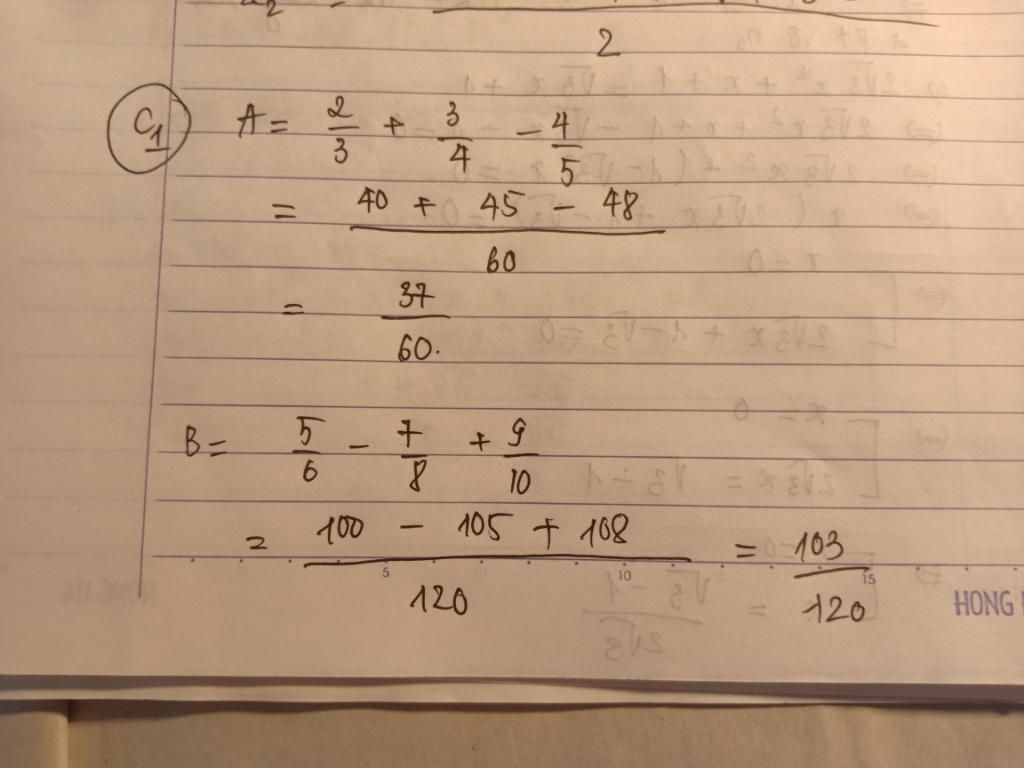 2
C1 A = 2/3 + 3/4 - 4/5
= (40 + 45 - 48)/60
= 37/60.
B = 5/6 - 7/8 + 9/10
= (100 - 105 + 108)/120 = 103/120
5 10 15
HONG